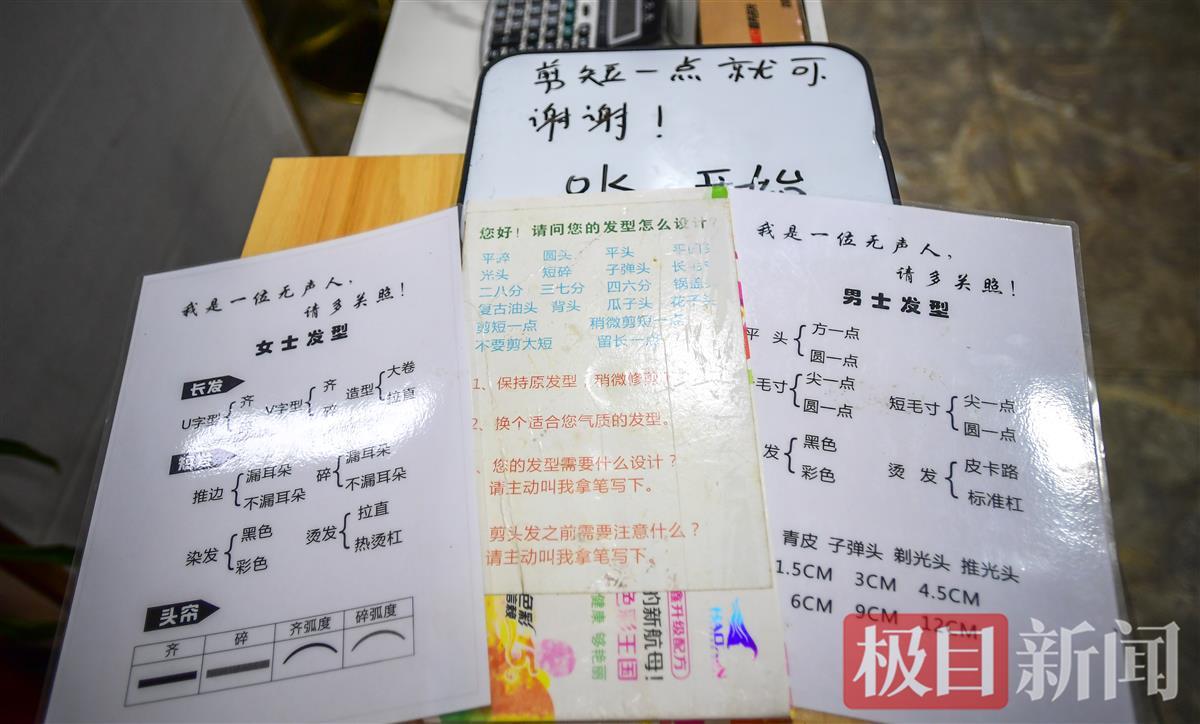 剪短一点就可
谢谢！
OK 开始
我是一位无声人，
请多关照！
女士发型
长发
U字型 齐 碎 V字型 齐 碎 造型 大卷 拉直
短发
推边 漏耳朵 不漏耳朵 碎 漏耳朵 不漏耳朵
染发 黑色 彩色 烫发 拉直 热烫杠
头帘
齐 碎 齐弧度 碎弧度
您好！请问您的发型怎么设计？
平碎 圆头 平头
光头 短碎 子弹头
二八分 三七分 四六分 锅盖
复古油头 背头 瓜子头 花子头
剪短一点 稍微剪短一点
不要剪太短 留长一点
1、保持原发型，稍微修剪
2、换个适合您气质的发型。
、您的发型需要什么设计？
请主动叫我拿笔写下。
剪头发之前需要注意什么？
请主动叫我拿笔写下。
色彩
的新航母！
健康 够艳丽
色彩王国
升级配方
我是一位无声人，
请多关照！
男士发型
平头 方一点 圆一点
毛寸 尖一点 圆一点 短毛寸 尖一点 圆一点
发 黑色 彩色 烫发 皮卡路 标准杠
青皮 子弹头 剃光头 推光头
1.5CM 3CM 4.5CM
6CM 9CM 12CM
极目新闻